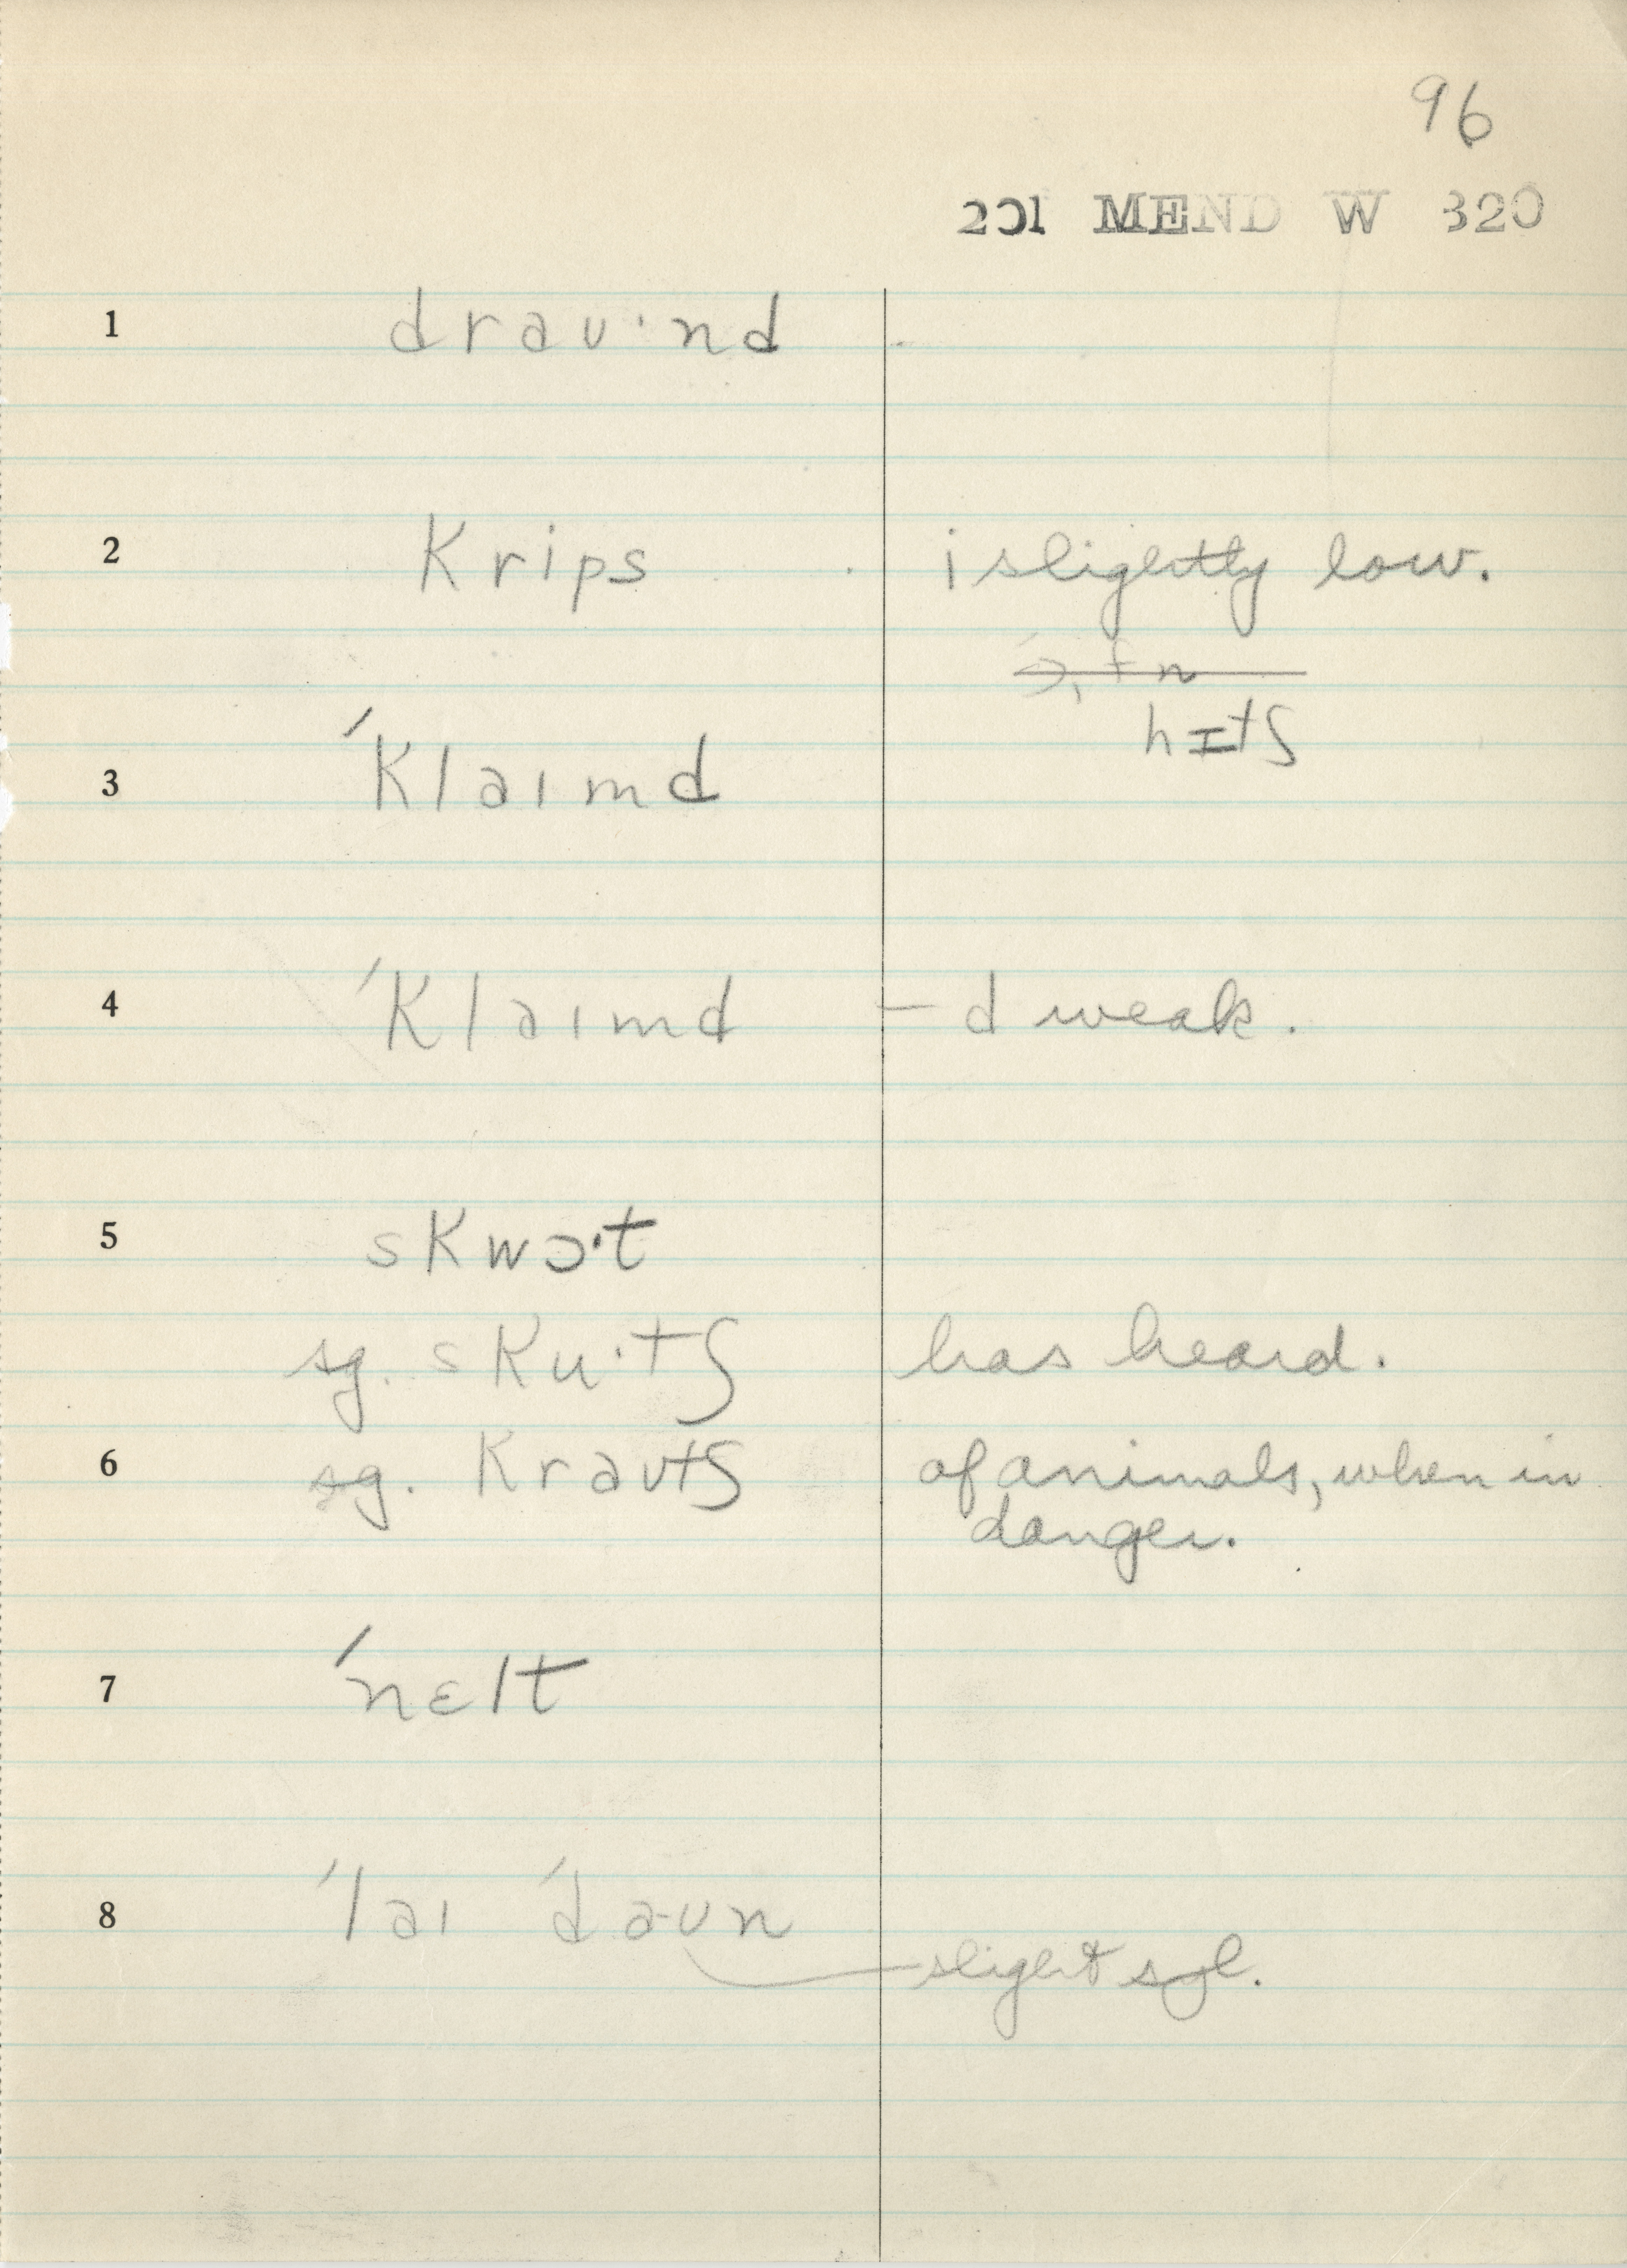 96
201 MEND W 320
1 draʊ·nd
2 krips i slightly low.
hɪtʃ
3 ˈklaɪmd
4 ˈklaɪmd – d weak.
5 skwɔ·t
sg. sku·tʃ has heard.
6 sg. kraʊtʃ of animals, when in
danger.
7 ˈnɛlt
8 ˈlaɪ ˈdaʊn slight syl.